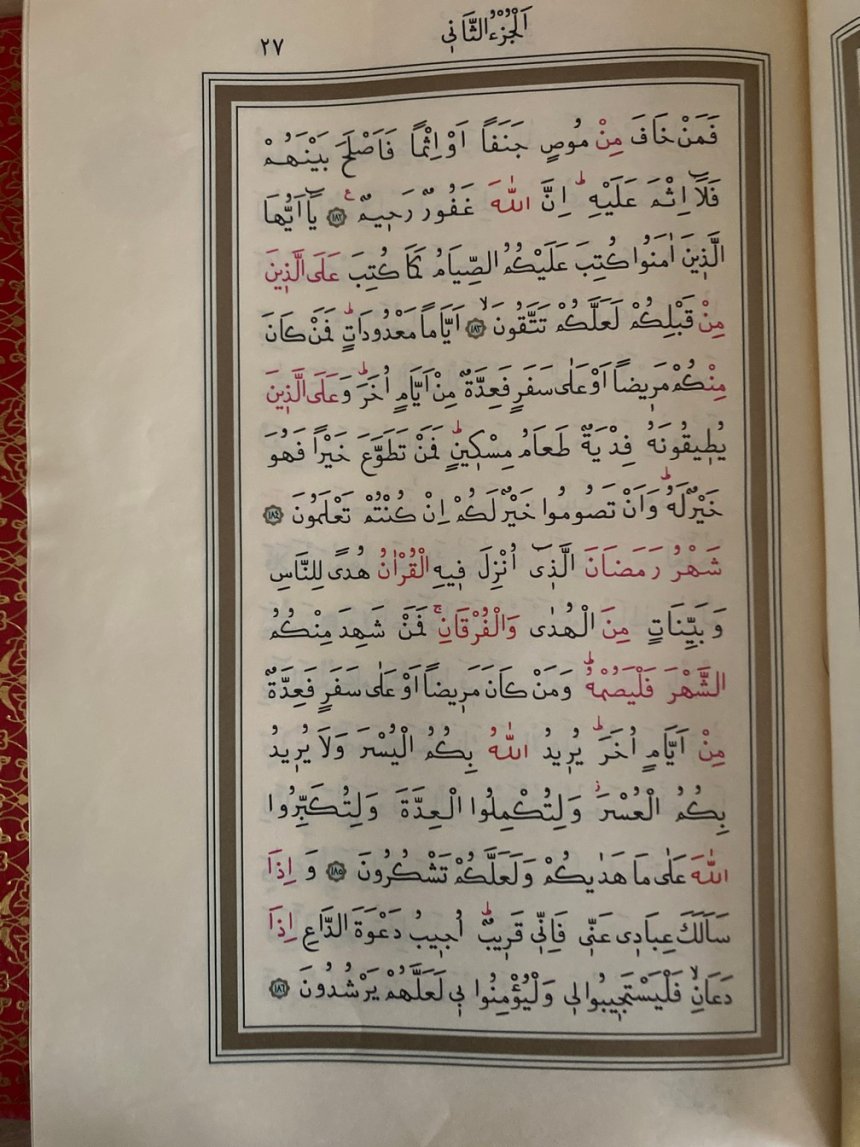 اَلْجُزْءُ الثَّانٖي
٢٧
فَمَنْ خَافَ مِنْ مُوصٍ جَنَفًا اَوْ اِثْمًا فَاَصْلَحَ بَيْنَهُمْ
فَلَٓا اِثْمَ عَلَيْهِ ؕ اِنَّ اللّٰهَ غَفُورٌ رَحٖيمٌ ع ﴿١٨٢﴾ يَٓا اَيُّهَا
الَّذٖينَ اٰمَنُوا كُتِبَ عَلَيْكُمُ الصِّيَامُ كَمَا كُتِبَ عَلَى الَّذٖينَ
مِنْ قَبْلِكُمْ لَعَلَّكُمْ تَتَّقُونَ ۙ ﴿١٨٣﴾ اَيَّامًا مَعْدُودَاتٍ ؕ فَمَنْ كَانَ
مِنْكُمْ مَرٖيضًا اَوْ عَلٰى سَفَرٍ فَعِدَّةٌ مِنْ اَيَّامٍ اُخَرَ ؕ وَعَلَى الَّذٖينَ
يُطٖيقُونَهُ فِدْيَةٌ طَعَامُ مِسْكٖينٍ ؕ فَمَنْ تَطَوَّعَ خَيْرًا فَهُوَ
خَيْرٌ لَهُ ؕ وَاَنْ تَصُومُوا خَيْرٌ لَكُمْ اِنْ كُنْتُمْ تَعْلَمُونَ ﴿١٨٤﴾
شَهْرُ رَمَضَانَ الَّذٖٓى اُنْزِلَ فٖيهِ الْقُرْاٰنُ هُدًى لِلنَّاسِ
وَبَيِّنَاتٍ مِنَ الْهُدٰى وَالْفُرْقَانِ ۚ فَمَنْ شَهِدَ مِنْكُمُ
الشَّهْرَ فَلْيَصُمْهُ ؕ وَمَنْ كَانَ مَرٖيضًا اَوْ عَلٰى سَفَرٍ فَعِدَّةٌ
مِنْ اَيَّامٍ اُخَرَ ؕ يُرٖيدُ اللّٰهُ بِكُمُ الْيُسْرَ وَلَا يُرٖيدُ
بِكُمُ الْعُسْرَ ؗ وَلِتُكْمِلُوا الْعِدَّةَ وَلِتُكَبِّرُوا
اللّٰهَ عَلٰى مَا هَدٰيكُمْ وَلَعَلَّكُمْ تَشْكُرُونَ ﴿١٨٥﴾ وَاِذَا
سَاَلَكَ عِبَادٖى عَنّٖى فَاِنّٖى قَرٖيبٌ ؕ اُجٖيبُ دَعْوَةَ الدَّاعِ اِذَا
دَعَانِ ۙ فَلْيَسْتَجٖيبُوا لٖى وَلْيُؤْمِنُوا بٖى لَعَلَّهُمْ يَرْشُدُونَ ﴿١٨٦﴾